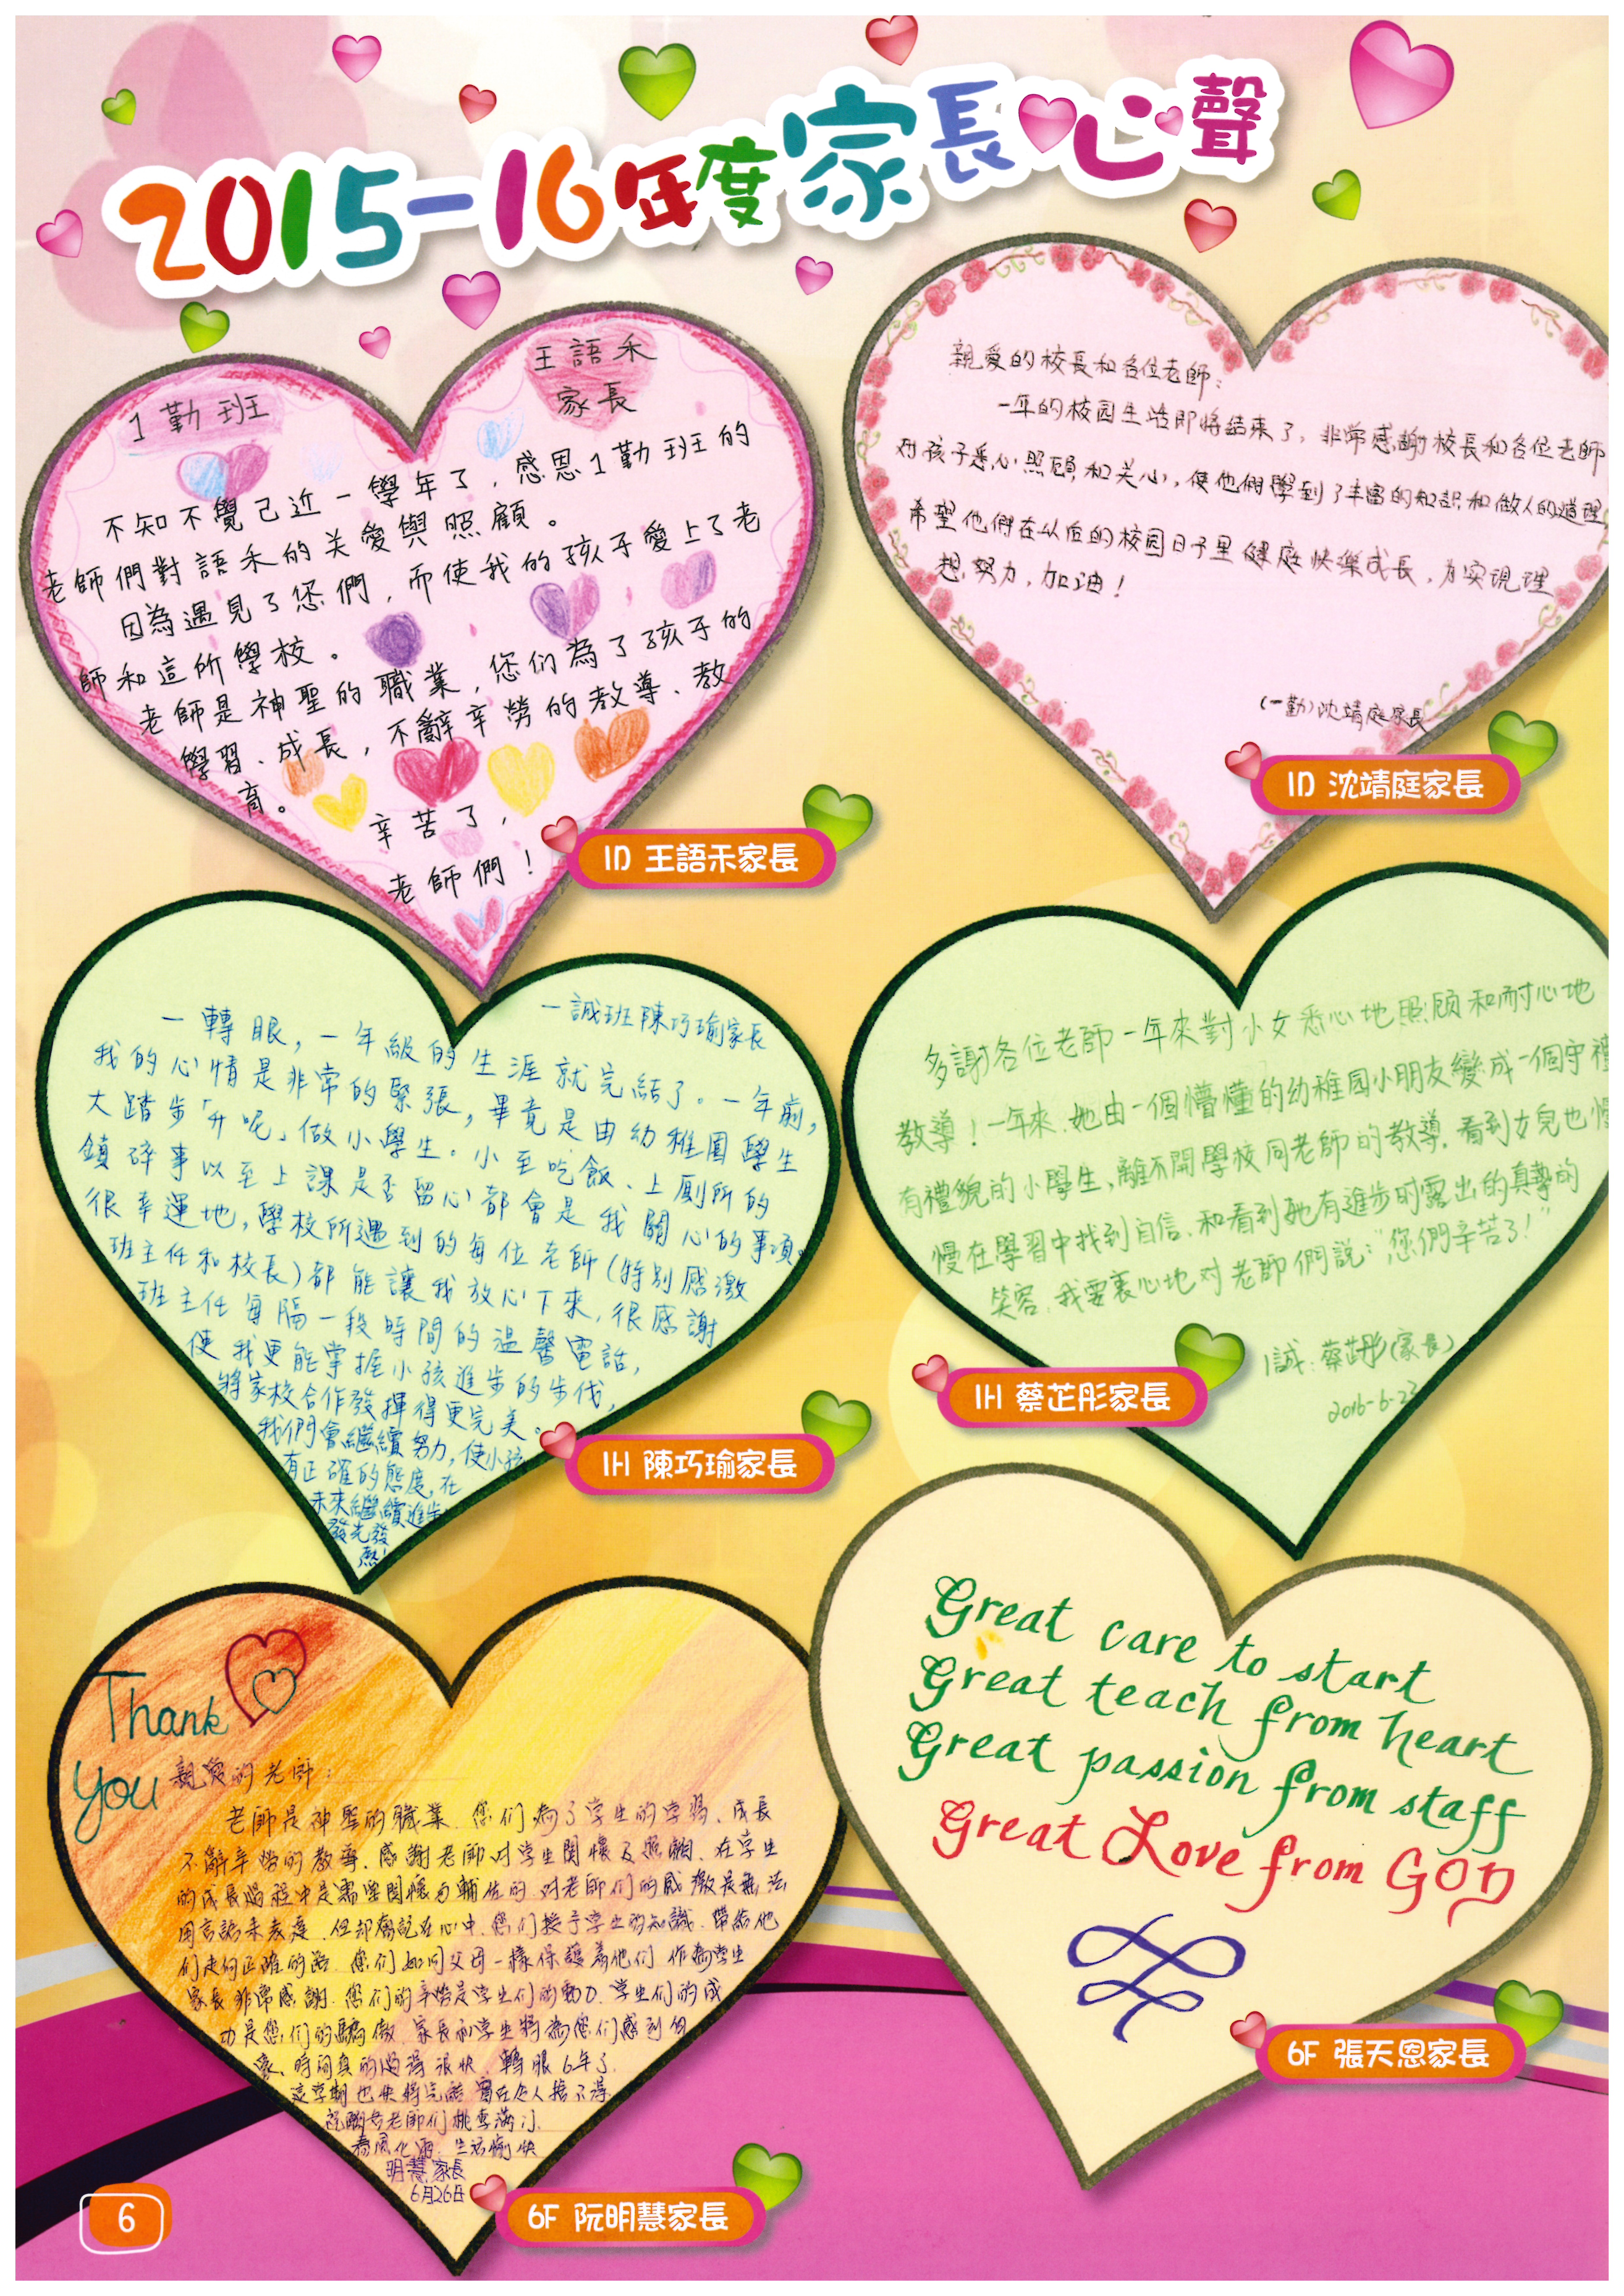 2015-16年度家長心聲
王語禾
家長
1勤班
不知不覺已近一學年了，感恩1勤班的
老師們對語禾的关愛與照顧。
因為遇見了您們，而使我的孩子愛上了老
師和這所學校。
老師是神聖的職業，您们為了孩子的
學習、成長，不辭辛勞的教導、教
育。
辛苦了，
老師們！
1D 王語禾家長
親爱的校長和各位老師：
一年的校园生活即將結束了，非常感謝校長和各位老師
对孩子悉心照顧和关心，使他們學到了丰富的知識和做人的道理
希望他們在以后的校园日子里健康快樂成長，为实現理
想，努力，加油！
(一勤)沈靖庭家長
1D 沈靖庭家長
一誠班陳巧瑜家長
一轉眼，一年級的生涯就完結了。一年前，
我的心情是非常的緊張，畢竟是由幼稚園學生
大踏步「升呢」做小學生。小至吃飯、上厠所的
鎖碎事以至上課是否留心都會是我關心的事項。
很幸運地，學校所遇到的每位老師(特別感激
班主任和校長)都能讓我放心下來，很感謝
班主任每隔一段時間的溫馨電話，
使我更能掌握小孩進步的步伐，
將家校合作發揮得更完美。
我們會繼續努力，使小孩
有正確的態度，在
未來繼續進步
發光發
熱！
1H 陳巧瑜家長
多謝各位老師一年來對小女悉心地照顧和耐心地
教導！一年來，她由一個懵懂的幼稚园小朋友變成一個守禮
有禮貌的小學生，離不開學校同老師的教導，看到女兒也慢
慢在學習中找到自信，和看到她有進步时露出的真摯的
笑容，我要衷心地对老師們説："您們辛苦了！"
1誠：蔡芷彤(家長)
2016-6-23
1H 蔡芷彤家長
Thank
You
親愛的老師：
老師是神聖的職業，您们為了学生的学習、成長
不辭辛勞的教導，感謝老師对学生関懷及照顧，在学生
的成長過程中是需要関懷与輔佐的，对老師们的感激是無法
用言語来表達，但却銘記在心中，您们授予学生的知識，帶給他
们走向正確的路，您们如同父母一樣保護着他们，作為学生
家長非常感謝，您们的辛勞是学生们的動力，学生们的成
功是您们的驕傲，家長和学生將為您们感到自
豪，時间真的過得很快，轉眼6年了，
這学期也快將完結，實在令人捨不得，
祝願各老師们桃李滿门，
春風化雨，生活愉快
明慧家長
6月26日
6F 阮明慧家長
Great care to start
Great teach from heart
Great passion from staff
Great Love from GOD
6F 張天恩家長
6